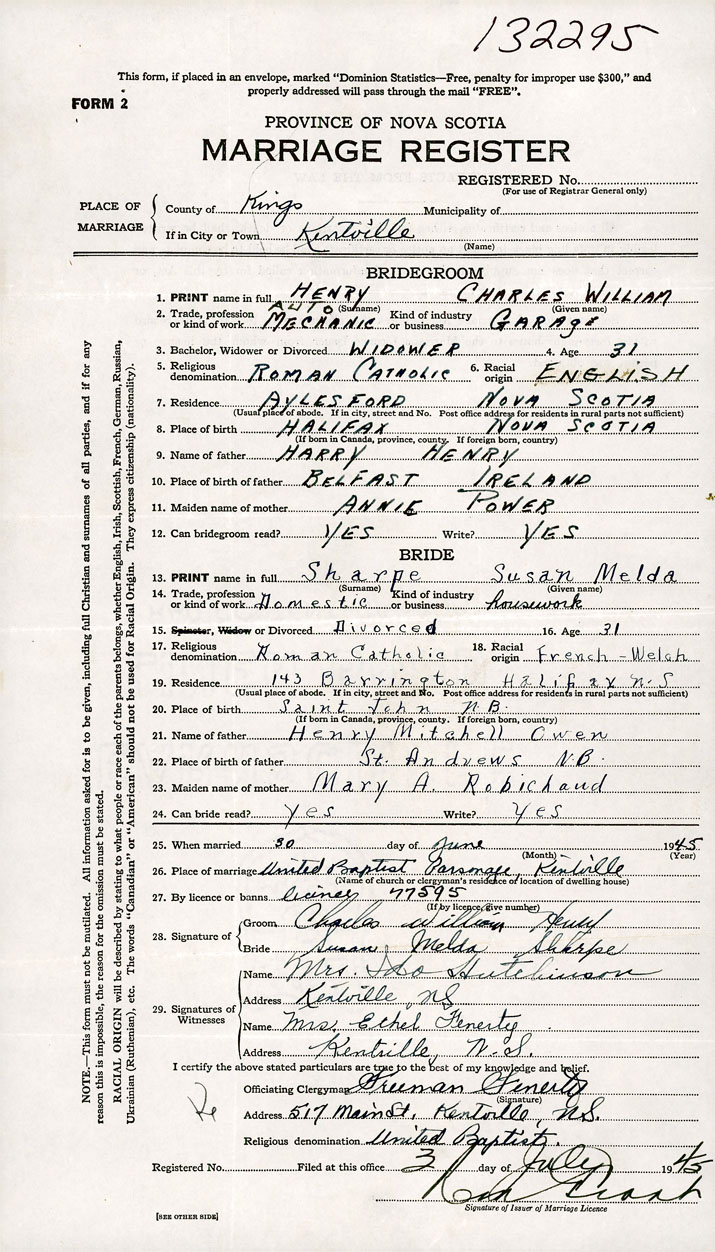 132295
This form, if placed in an envelope, marked "Dominion Statistics—Free, penalty for improper use $300," and
properly addressed will pass through the mail "FREE".
FORM 2
PROVINCE OF NOVA SCOTIA
MARRIAGE REGISTER
REGISTERED No.
(For use of Registrar General only)
PLACE OF MARRIAGE
County of Kings Municipality of
If in City or Town Kentville
(Name)
BRIDEGROOM
1. PRINT name in full HENRY CHARLES WILLIAM
(Surname) (Given name)
2. Trade, profession or kind of work AUTO MECHANIC Kind of industry or business GARAGE
3. Bachelor, Widower or Divorced WIDOWER 4. Age 31
5. Religious denomination ROMAN CATHOLIC 6. Racial origin ENGLISH
7. Residence AYLESFORD NOVA SCOTIA
(Usual place of abode. If in city, street and No. Post office address for residents in rural parts not sufficient)
8. Place of birth HALIFAX NOVA SCOTIA
(If born in Canada, province, county. If foreign born, country)
9. Name of father HARRY HENRY
10. Place of birth of father BELFAST IRELAND
11. Maiden name of mother ANNIE POWER
12. Can bridegroom read? YES Write? YES
BRIDE
13. PRINT name in full Sharpe Susan Melda
(Surname) (Given name)
14. Trade, profession or kind of work Domestic Kind of industry or business housework
15. Spinster, Widow or Divorced Divorced 16. Age 31
17. Religious denomination Roman Catholic 18. Racial origin French-Welch
19. Residence 143 Barrington Halifax N-S
(Usual place of abode. If in city, street and No. Post office address for residents in rural parts not sufficient)
20. Place of birth Saint John N.B.
(If born in Canada, province, county. If foreign born, country)
21. Name of father Henry Mitchell Owen
22. Place of birth of father St. Andrews N.B.
23. Maiden name of mother Mary A. Robichaud
24. Can bride read? yes Write? Yes
25. When married 30 day of June 1945
(Month) (Year)
26. Place of marriage United Baptist Parsonage, Kentville
(Name of church or clergyman's residence or location of dwelling house)
27. By licence or banns 77595
(If by licence, give number)
28. Signature of
Groom Charles William Henry
Bride Susan Melda Sharpe
29. Signatures of Witnesses
Name Mrs. Hutchinson
Address Kentville, NS
Name Mrs. Ethel Fenerty
Address Kentville, N.S.
I certify the above stated particulars are true to the best of my knowledge and belief.
Officiating Clergyman Freeman Fenerty
(Signature)
Address 517 Main St, Kentville, N.S.
Religious denomination United Baptist.
Registered No. Filed at this office 3 day of July 1945
Signature of Issuer of Marriage Licence
[SEE OTHER SIDE]
NOTE.—This form must not be mutilated. All information asked for is to be given, including full Christian and surnames of all parties, and if for any
reason this is impossible, the reason for the omission must be stated.
RACIAL ORIGIN will be described by stating to what people or race each of the parents belongs, whether English, Irish, Scottish, French, German, Russian,
Ukrainian (Ruthenian), etc. The words "Canadian" or "American" should not be used for Racial Origin. They express citizenship (nationality).